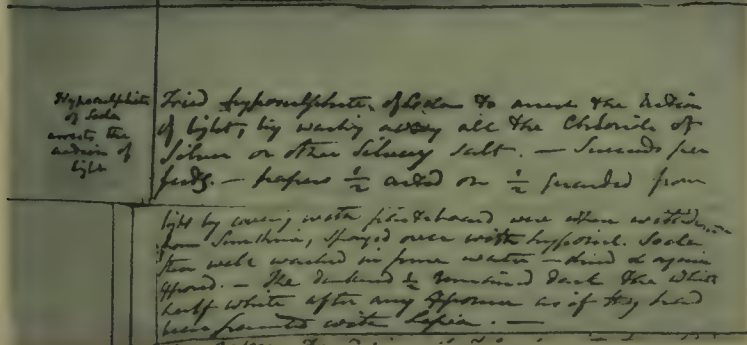 Hyposulphite
of Soda
arrests the
action of
light
Tried hyposulphite of Soda to arrest the action
of light, by washing away all the Chloride of
Silver or other Silvery salt. — Succeeds per
fectly. — papers ½ acted on ½ guarded from
light by covering with pasteboard were when withdrawn
from Sunshine, sponged over with hyposul. Soda
then well washed in pure water — dried & again
exposed. — The darkened ½ remained dark the white
half white after any exposure as if they had
been painted with Sepia. —